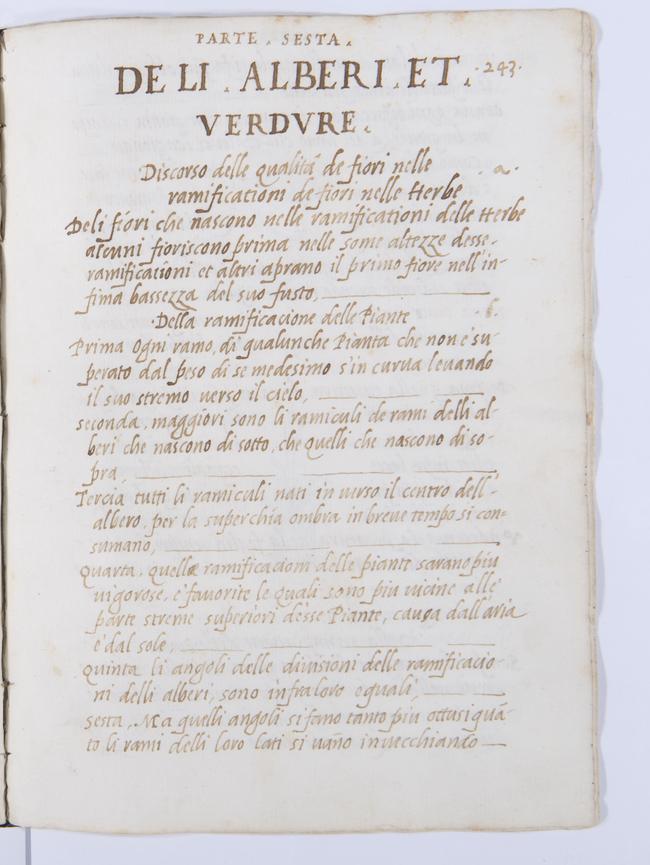 PARTE . SESTA .
DE LI . ALBERI . ET . · 243 ·
VERDVRE .
Discorso delle qualità de fiori nelle · a ·
ramificationi de fiori nelle Herbe
Deli fiori che nascono nelle ramificationi delle Herbe
alcuni fioriscono prima nelle some altezze desse
ramificationi et altri aprano il primo fiore nell'in-
fima bassezza del suo fusto,
Della ramificacione delle Piante
Prima Ogni ramo, di qualunche Pianta che non e su-
perato dal peso di se medesimo s'in curua leuando
il suo stremo verso il cielo,
seconda, maggiori sono li ramiculi de rami delli al-
beri che nascono di sotto, che quelli che nascono di so-
pra,
Tercia tutti li ramiculi nati in verso il centro dell'-
albero, per la superchia ombra in breue tempo si con=
sumano,
Quarta, quelle ramificacioni delle piante sarano piu
vigorose, e fauorite le quali sono piu vicine alle
parte streme superiori desse Piante, cauga dall'aria
e dal sole,
Quinta li angoli delle diuisioni delle ramificacio-
ni delli alberi, sono infraloro equali,
sesta, Ma quelli angoli si fano tanto piu ottusi quā-
to li rami delli loro lati si uāno inuecchiando